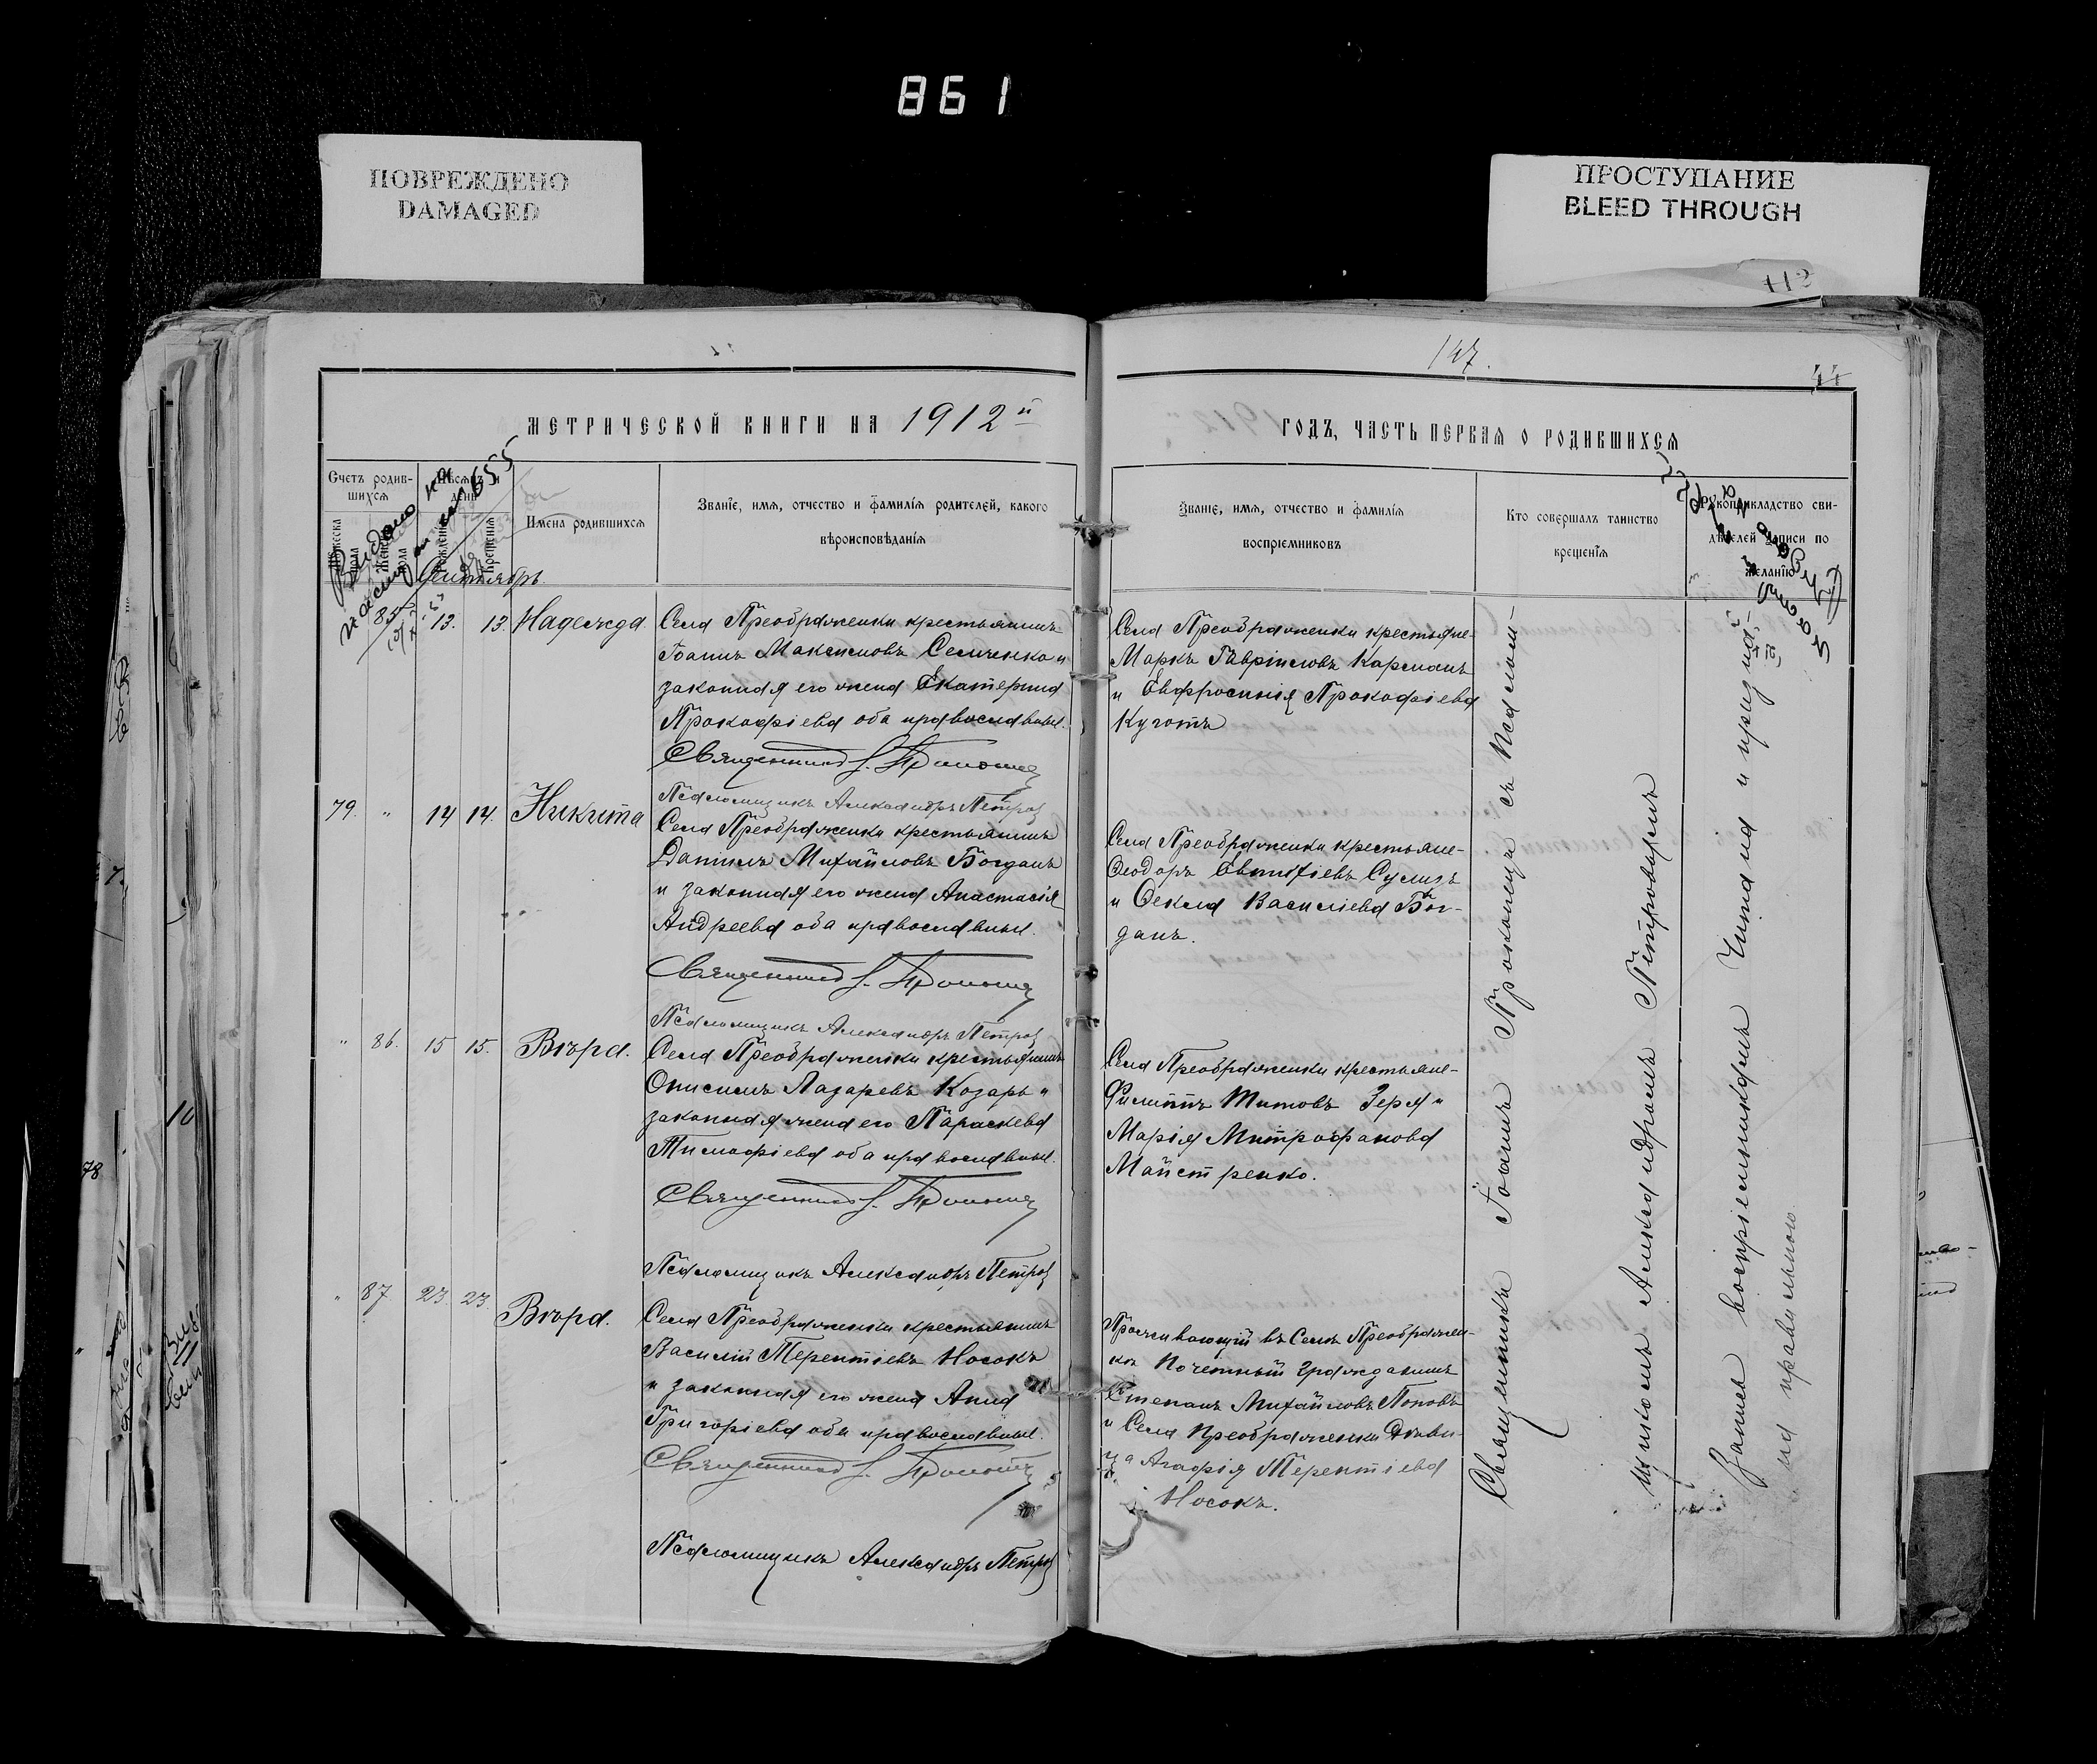 861
ПОВРЕЖДЕНО
DAMAGED
ПРОСТУПАНИЕ
BLEED THROUGH
112
МЕТРИЧЕСКОЙ КНИГИ НА 1912й
Счетъ родив-
шихся
Мѣсяцъ и
день
Мужеска
пола
Женска
пола
Рожденія
Крещенія
Имена родившихся
Званіе, имя, отчество и фамилія родителей, какого
вѣроисповѣданія
Выдано
655
Сентябрь.
85
13.
13.
Надежда.
Села Преображенки крестьянинъ
Іоаннъ Максимовъ Семченко и
законная его жена Екатерина
Прокофіева оба православные.
Священникъ І. Прокопец
Псаломщикъ Александръ Петров
79.
"
14
14.
Никита
Села Преображенки крестьянинъ
Даніилъ Михайловъ Богданъ
и законная его жена Анастасія
Андреева оба православные.
Священникъ І. Прокопец
Псаломщикъ Александръ Петров
"
86.
15
15.
Вѣра.
Села Преображенки крестьянинъ
Онисимъ Лазаревъ Козарь и
законная жена его Параскева
Тимофіева оба православные.
Священникъ І. Прокопец
Псаломщикъ Александръ Петров
"
87
23.
23.
Вѣра.
Села Преображенки крестьянинъ
Василій Терентіевъ Носокъ
и законная его жена Анна
Григоріева оба православные.
Священникъ І. Прокопец
Псаломщикъ Александръ Петров
147.
44
ГОДЪ, ЧАСТЬ ПЕРВАЯ О РОДИВШИХСЯ
Званіе, имя, отчество и фамилія
воспріемниковъ
Кто совершалъ таинство
крещенія
Рукоприкладство сви-
дѣтелей записи по
желанію
Села Преображенки крестьяне-
Маркъ Гавріиловъ Карманъ
и Евфросинія Прокофіева
Кучотъ
Села Преображенки крестьяне-
Феодоръ Евтифіевъ Сулизъ
и Фекла Василіева Бог-
данъ.
Села Преображенки крестьяне-
Филиппъ Титовъ Зеря и
Марія Митрофанова
Майстренко.
Проживающій въ Селѣ Преображен-
кѣ Почетный гражданинъ
Стефанъ Михайловъ Поповъ
и Села Преображенки Дѣви-
ца Агафія Терентіева
Носокъ.
Священникъ Іоаннъ Прокопецъ съ Псалом-
щикомъ Александромъ Петровымъ
Запись воспріемникамъ читана и признана
правильною.